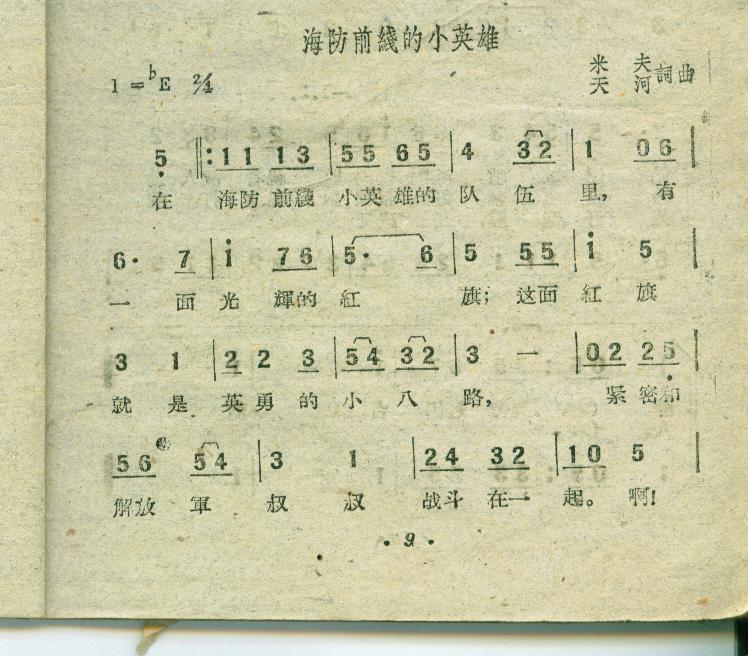 海防前綫的小英雄
1=ᵇE 2/4
米夫 詞曲
天河
5̣ ‖: 1 1 1 3 | 5 5 6 5 | 4 3 2 | 1 0 6 |
在 海防 前綫 小英 雄的 队 伍 里, 有
6· 7 | i 7 6 | 5· 6 | 5 5 5 | i 5 |
一 面 光 輝的 紅 旗; 这面 紅 旗
3 1 | 2 2 3 | 5 4 3 2 | 3 — | 0 2 2 5̣ |
就 是 英 勇 的 小 八 路, 紧 密和
5 6 5 4 | 3 1 | 2 4 3 2 | 1 0 5 |
解放 軍 叔 叔 战斗 在一 起。 啊!
· 9 ·